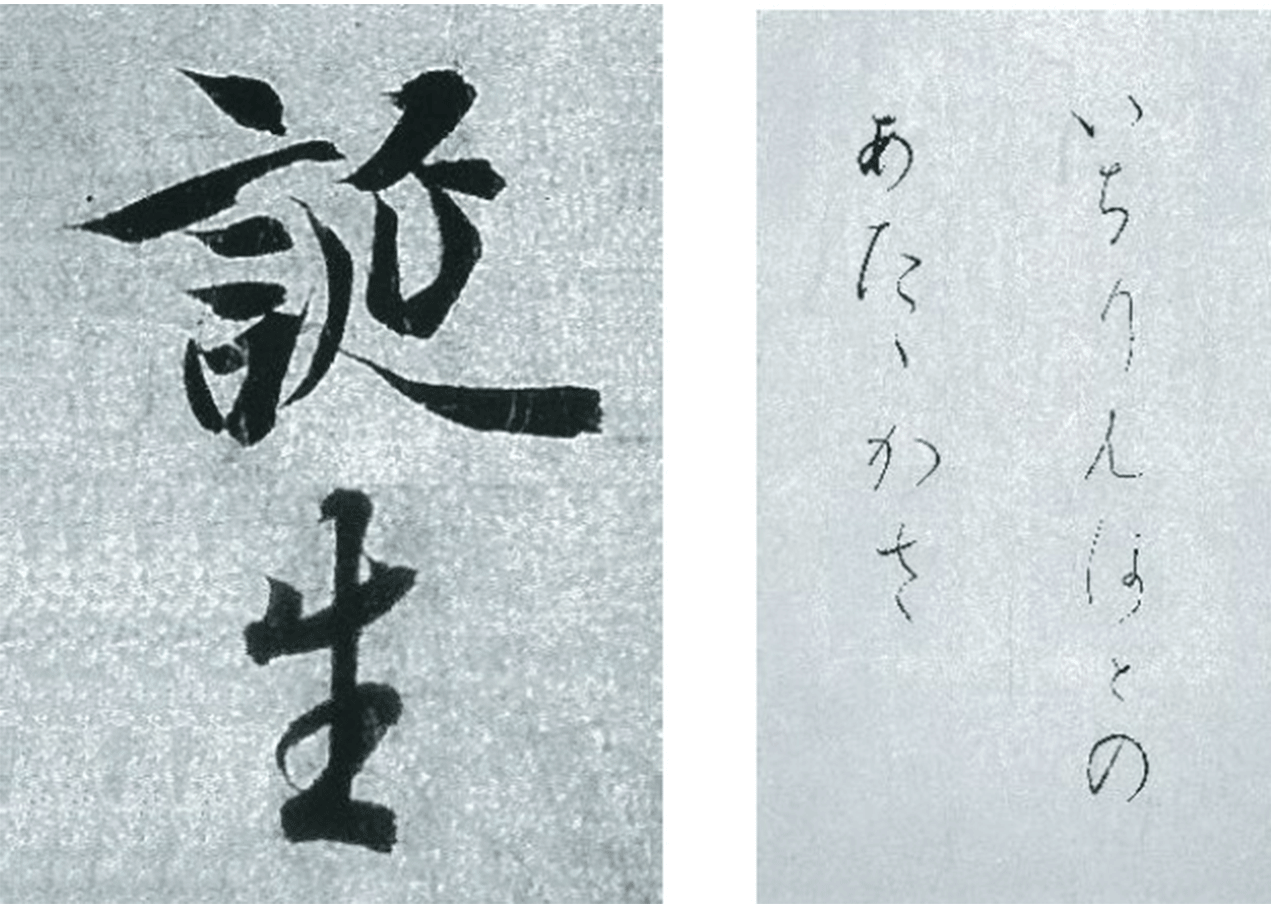 誕生
いちりんほとの
あたゝかさ